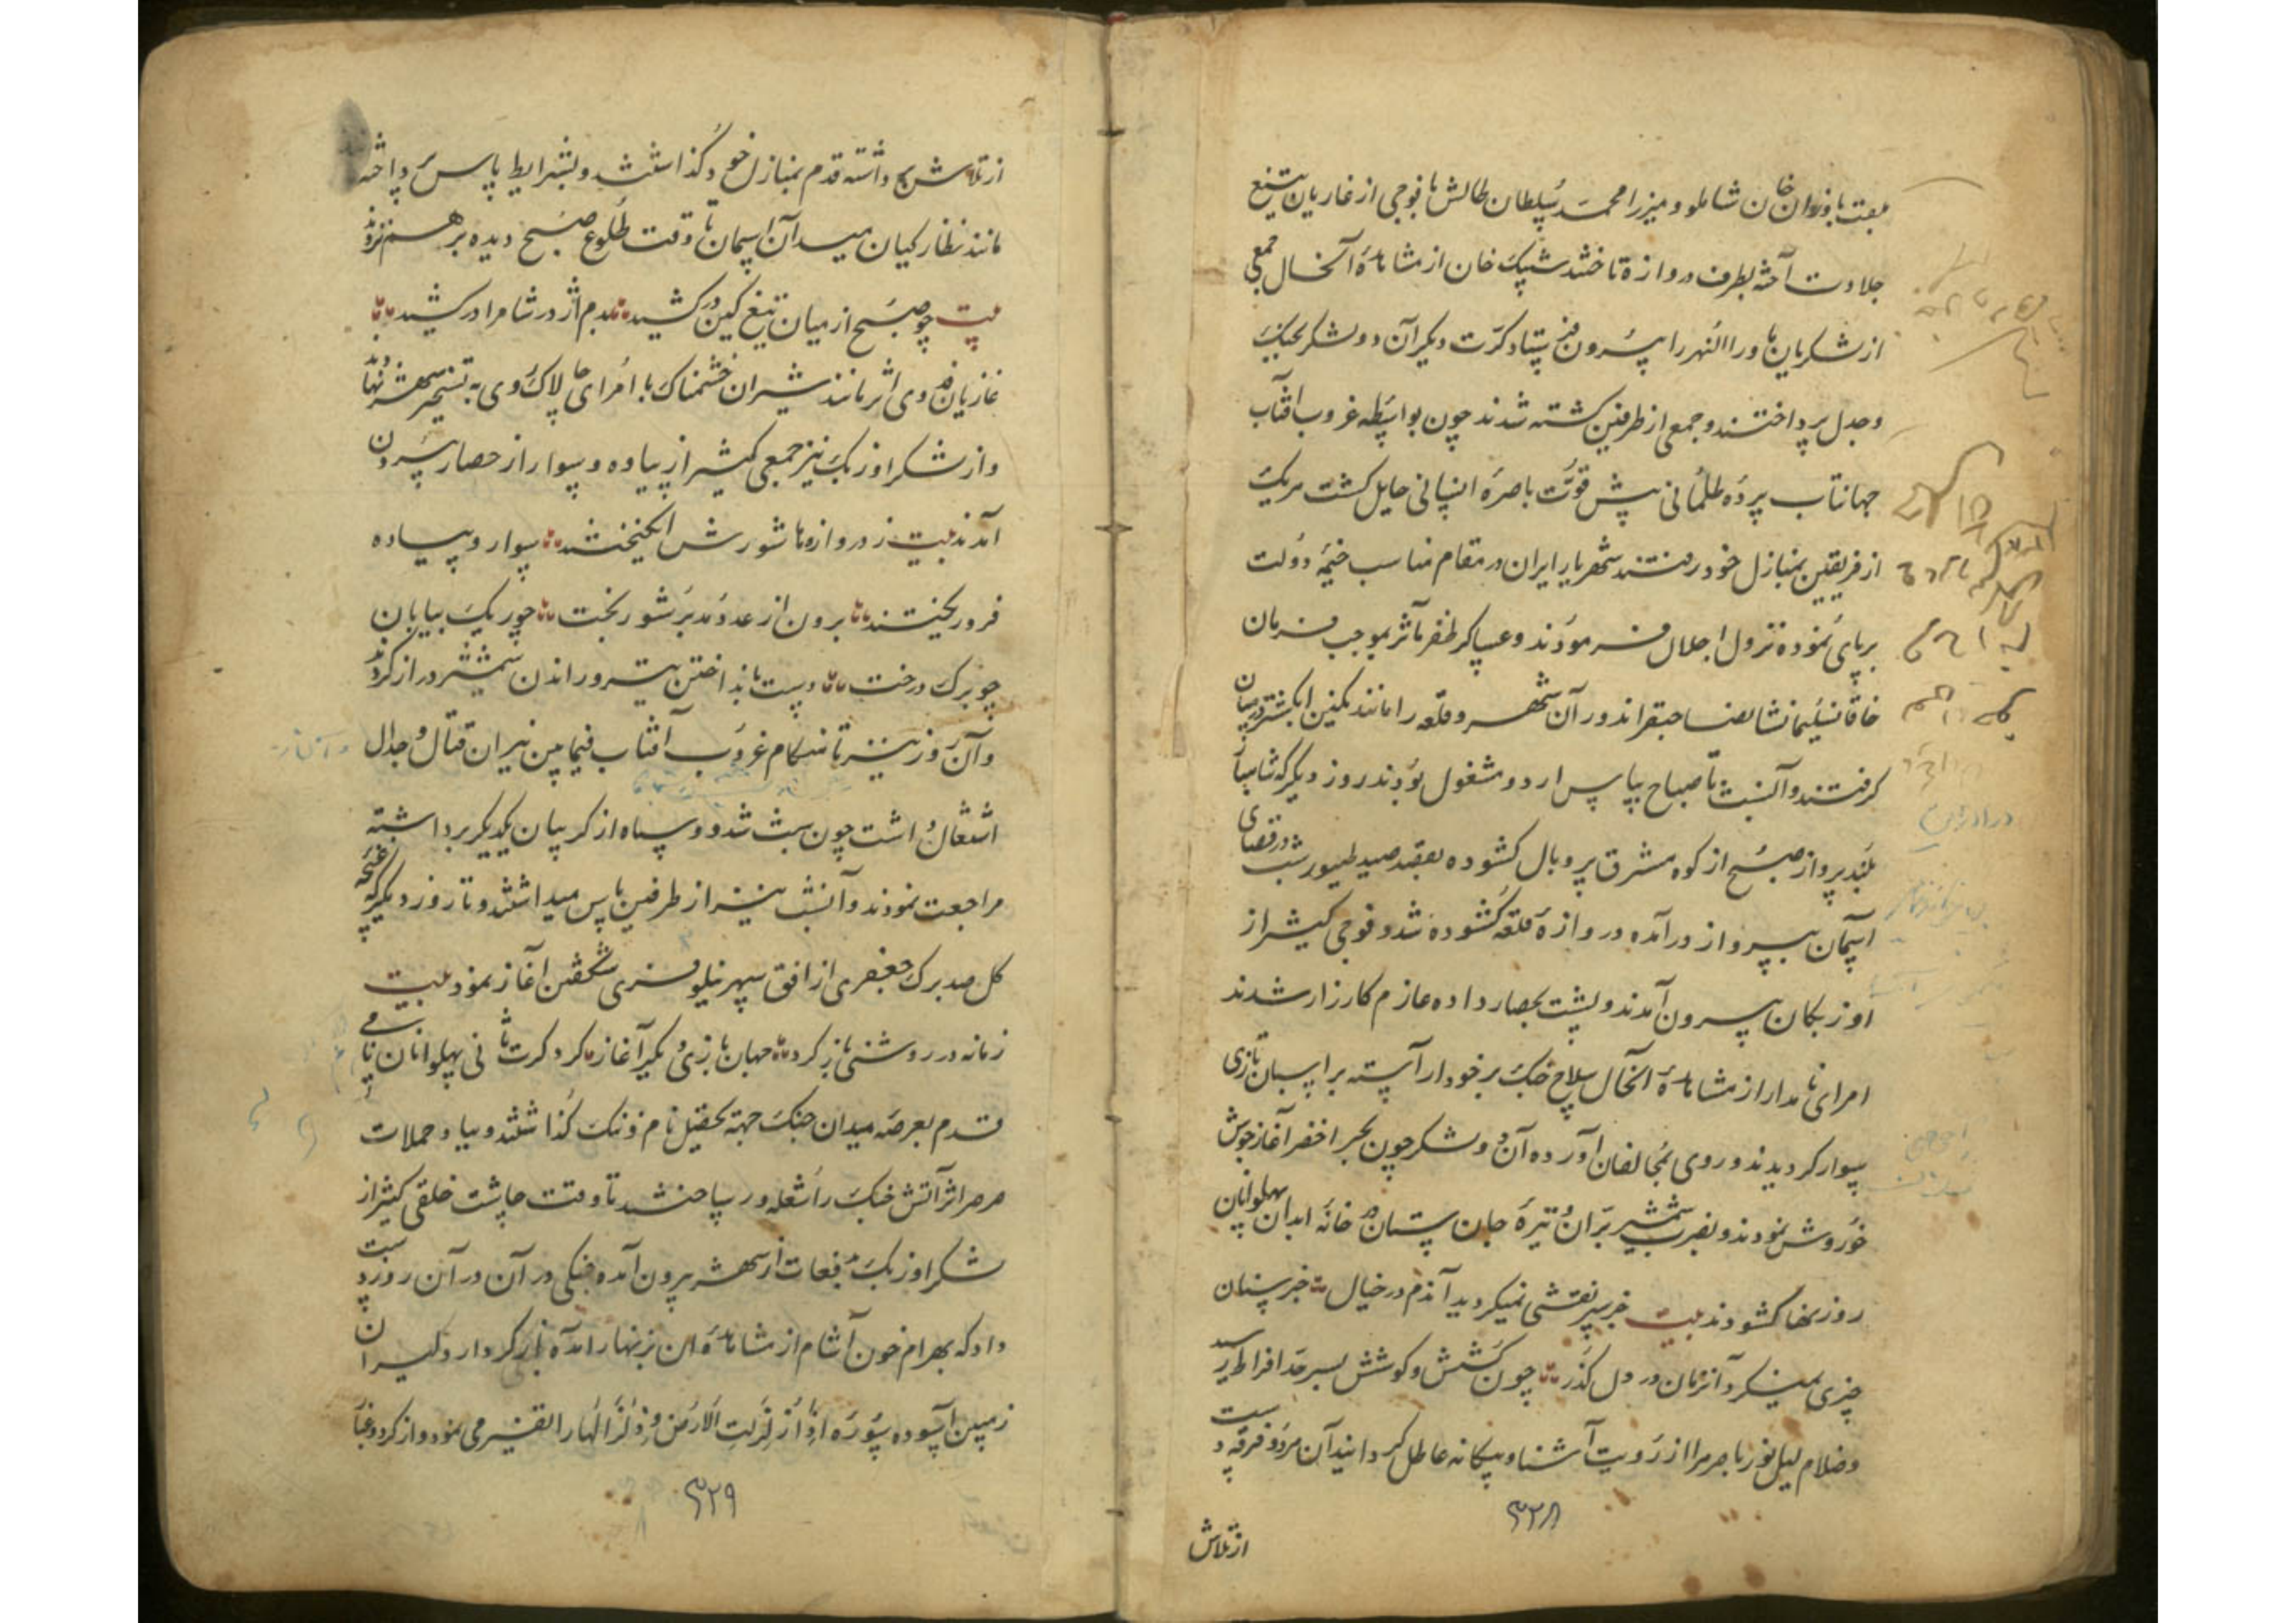 بعبت باذوان خان شاملو و میرزا محمد سلطان طالش با فوجی از غازیان تیغ
جلادت آخته بطرف دروازه تاختند شیبک خان از مشاهدۀ آنحال جمعی
از لشکریان ماوراالنهر را بیرون فرستاد کرت دیگر آن دو لشکر بجنگ
و جدل پرداختند و جمعی از طرفین کشته شدند چون بواسطه غروب آفتاب
جهانتاب پردۀ ظلمانی پیش قوت باصرۀ انسانی حایل کشت هریک
از فریقین بمنازل خود رفتند شهریار ایران در مقام مناسب خیمۀ دولت
برپای نموده نزول اجلال فرمودند و عساکر ظفر مآثر بموجب فرمان
خاقان سلیمانشان صاحبقران دور آن شهر و قلعه را مانند نکین انکشتر درمیان
کرفتند و آنشب تا صباح بپاس اردو مشغول بودند روز دیکر که شاهباز
بلند پرواز صبح از کوه مشرق پر و بال کشوده بقصد صید طیور شب در فضای
آسمان بپرواز درآمده دروازۀ قلعه کشوده شد و فوجی کثیر از
اوزبکان بیرون آمدند و پشت بحصار داده عازم کارزار شدند
امرای نامدار از مشاهدۀ آنحال سلاح جنک بر خود آراسته بر اسبان تازی
سوار کردیدند و روی بمخالفان آورده آن دو لشکر چون بحر اخضر آغاز جوش
خروش نمودند و بضرب شمشیر بران و نیزۀ جان ستان در خانۀ ابدان پهلوانان
روزنها کشودند بیت جز سر نقشی نمیکردید آندم در خیال جز سنان
چیزی نمیکرد آنزمان در دل گذر چون کشش و کوشش بسر حد افراط رسید
و ظلام لیل نور باصره را از رویت آشنا و بیکانه عاطل کردانید آن هر دو فرقه دست
۳۲۸
از تلاش
از تلاش بیج داشته قدم بمنازل خود گذاشتند و بشرایط پاس پرداخته
مانند نظارکیان میدان آسمان تا وقت طلوع صبح دیده بر هم نزدند
بیت چو صبح از میان تیغ کین در کشید بدم اژدر شام را در کشید
غازیان فدوی اثر مانند شیران خشمناک با امرای چالاک روی به تسخیر شهر نهاد
و از لشکر اوزبک نیز جمعی کثیر از پیاده و سوار از حصار بیرون
آمدند بیت ز دروازها شورش انکیختند سوار و پیاده
فرو ریختند برون از عدد مدبر شوربخت چو ریک بیابان
چو برک درخت دست بانداختن تیر و راندن شمشیر دراز کردند
و آن روز نیز تا هنکام غروب آفتاب فیما بین نیران قتال و جدال
اشتعال داشت چون شب شد دو سپاه از کریبان یکدیکر برداشته
مراجعت نمودند و آنشب نیز از طرفین پاس میداشتند و تا روز دیگر که غنچۀ
کل صد برک جعفری از افق سپهر نیلوفری شکفتن آغاز نمود بیت
زمانه در روشنی باز کرد جهان بازی دیگر آغاز کرد کرت ثانی پهلوانان نامی
قدم بعرصه میدان جنک جهة تحصیل نام و ننک گذاشتند و بباد حملات
صرصر اثر آتش جنک را شعله ور ساختند تا وقت چاشت خلقی کثیر از
لشکر اوزبک بدفعات از شهر بیرون آمده جنکی در آن در آن روز دست
داد که بهرام خون آشام از مشاهدۀ ان بزنهار امده باز کردار و کیر ان
زمین آسوده سوره اذا زلزلت الارض زلزالها را تفسیر می نمود و از کرد و غبار
۳۲۹